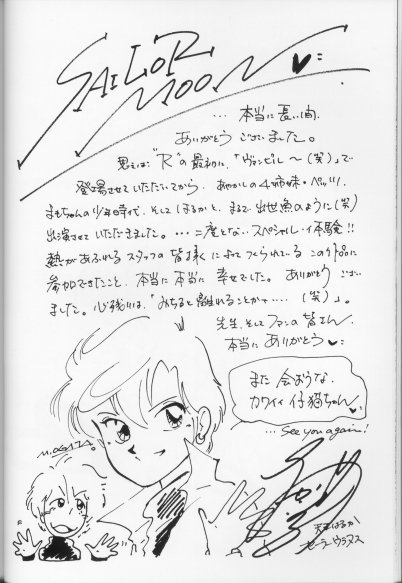 SAILOR
MOON
… 本当に長い間、
ありがとうございました。
思えば "R" の最初に、「ヴァンピル〜(笑)」で
登場させていただいてから、あやかしの4姉妹・ペッツ、
まもちゃんの少年時代、そしてはるかと、まるで出世魚のように(笑)
出演させていただきました。…二度とない、スペシャル・イ体験!!
熱があふれるスタッフの皆様によってつくられるこの作品に
参加できたこと、本当に本当に幸せでした。ありがとうござい
ました。心残りは、「みちると離れることかナ…(笑)」。
先生、そしてファンの皆さん、
本当にありがとう
また会おうな、
カワイイ仔猫ちゃん
…See you again!
M.OGATA
天王はるか
セーラーウラヌス